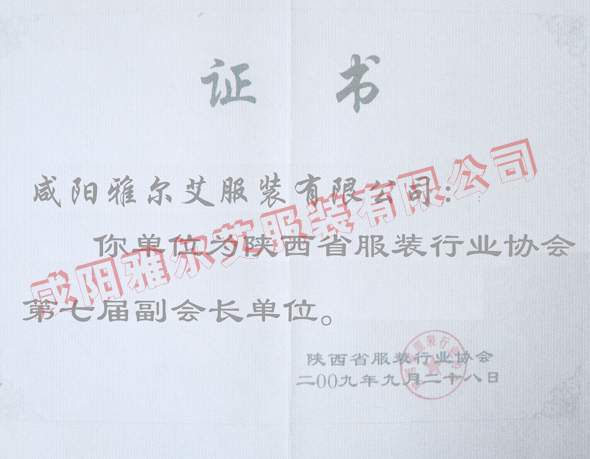 证 书
咸阳雅尔艾服装有限公司：
你单位为陕西省服装行业协会
第七届副会长单位。
陕西省服装行业协会
二00九年九月二十八日
咸阳雅尔艾服装有限公司